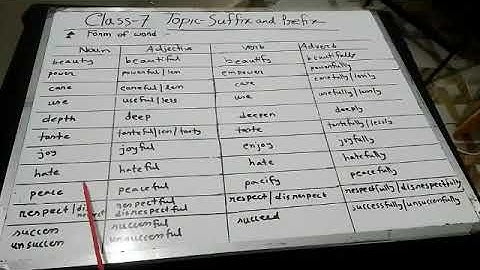 Class-7 Topic-Suffix and Prefix
Form of word -
Noun Adjective verb Adverb
beauty beautiful beautify beautifully
power powerful/less empower powerfully
care careful/less care carefully/lessly
use useful/less use usefully/lessly
depth deep deepen deeply
taste tasteful/less/tasty taste tastefully/lessly
joy joyful enjoy joyfully
hate hateful hate hatefully
peace peaceful pacify peacefully
respect/disrespect respectful disrespectful respect/disrespect respectfully/disrespectfully
success unsuccess successful unsuccessful succeed successfully/unsuccessfully